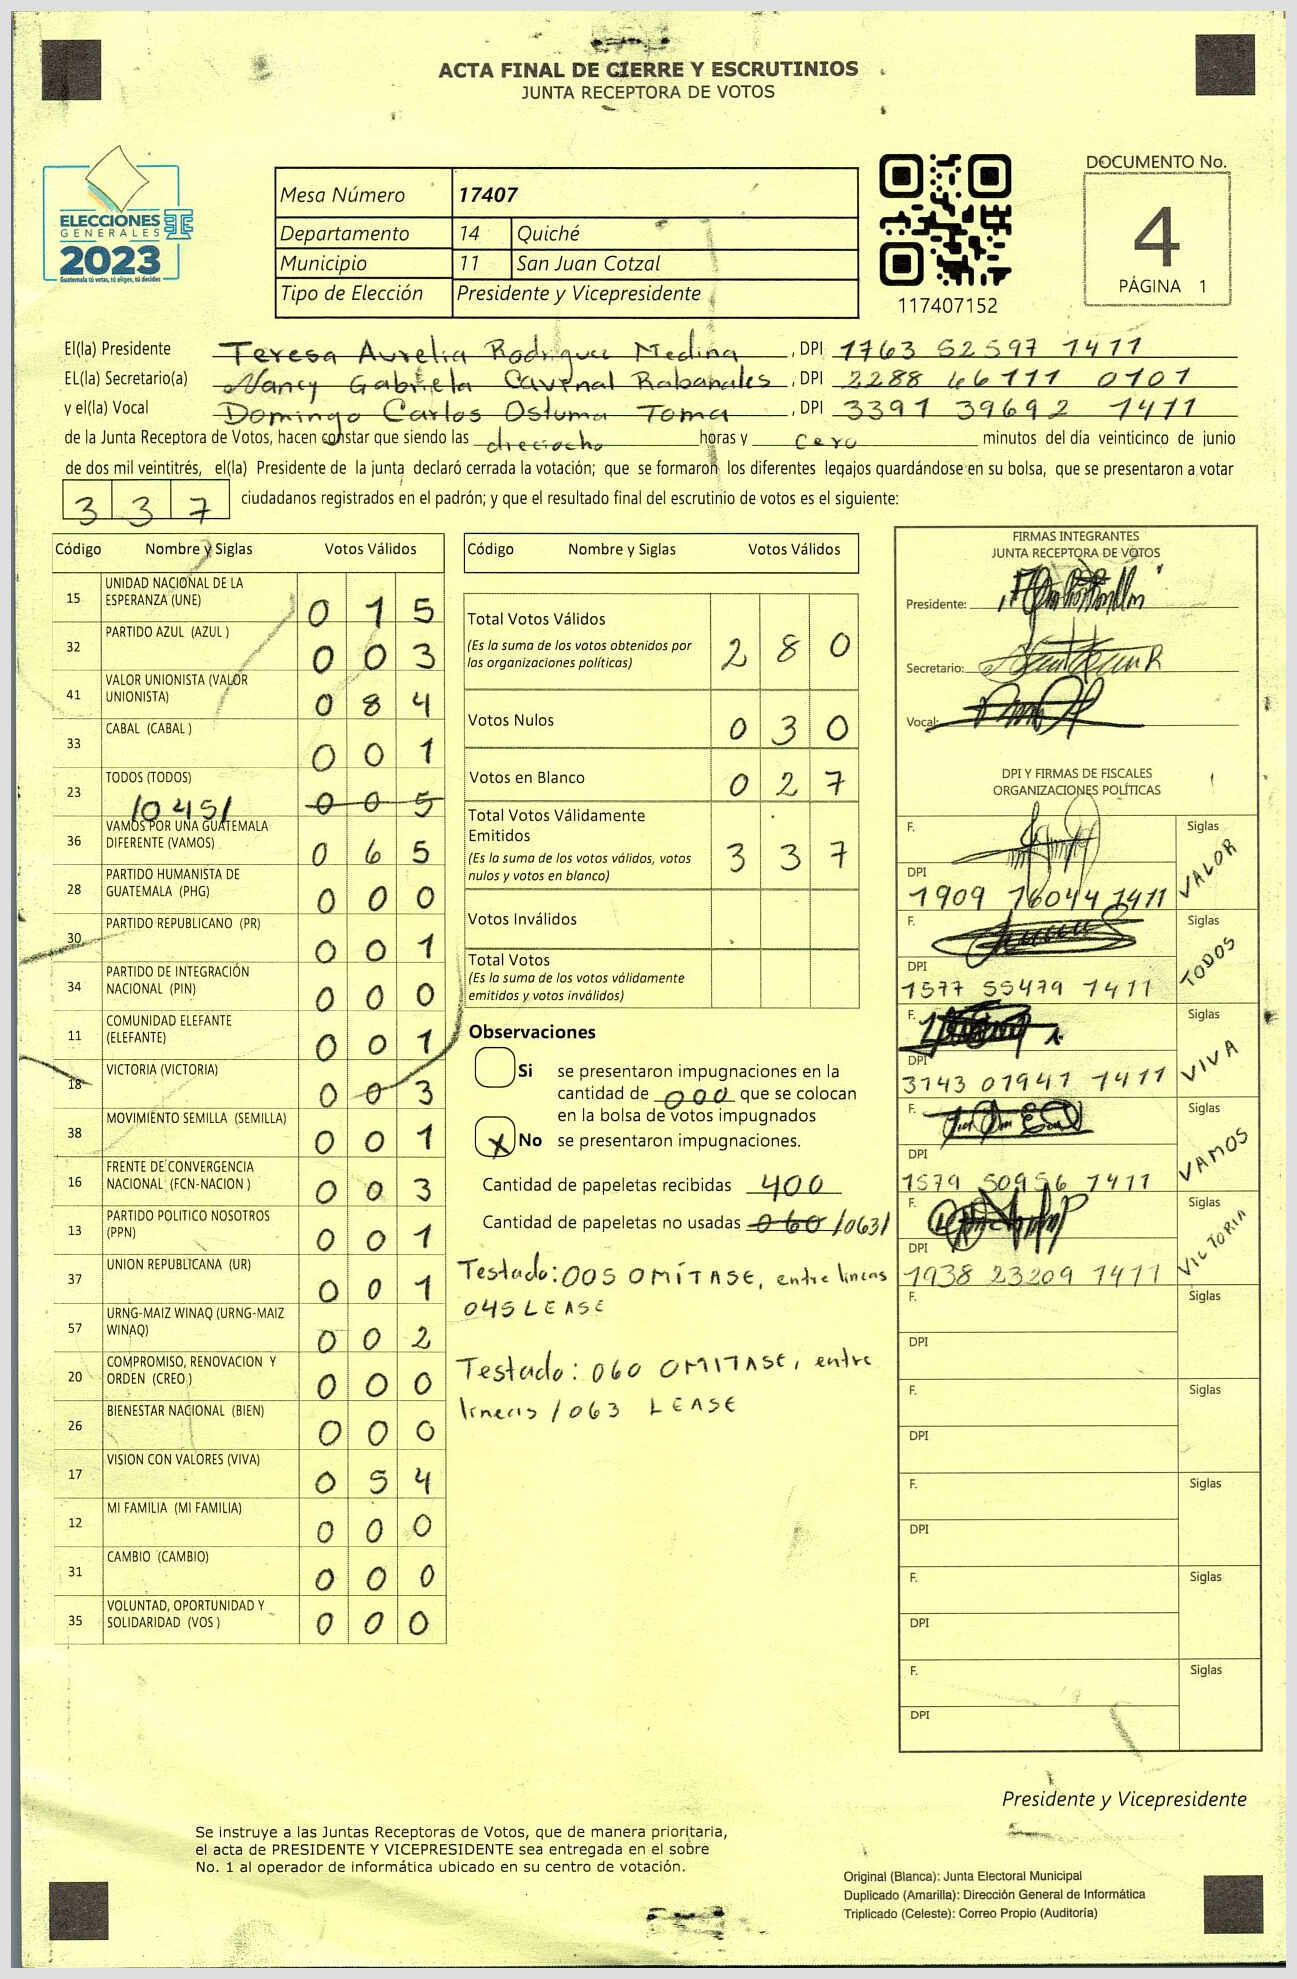 ACTA FINAL DE CIERRE Y ESCRUTINIOS
JUNTA RECEPTORA DE VOTOS
ELECCIONES
GENERALES
2023
Guatemala tú votas, tú eliges, tú decides
Mesa Número 17407
Departamento 14 Quiché
Municipio 11 San Juan Cotzal
Tipo de Elección Presidente y Vicepresidente
117407152
DOCUMENTO No.
4
PÁGINA 1
El(la) Presidente Teresa Aurelia Rodriguez Medina, DPI 1763 52597 1411
EL(la) Secretario(a) Nancy Gabriela Cavenal Rabanales, DPI 2288 46111 0101
y el(la) Vocal Domingo Carlos Ostuma Toma, DPI 3391 39692 1411
de la Junta Receptora de Votos, hacen constar que siendo las dieciocho horas y cero minutos del día veinticinco de junio
de dos mil veintitrés, el(la) Presidente de la junta declaró cerrada la votación; que se formaron los diferentes legajos guardándose en su bolsa, que se presentaron a votar
337 ciudadanos registrados en el padrón; y que el resultado final del escrutinio de votos es el siguiente:
Código Nombre y Siglas Votos Válidos
15 UNIDAD NACIONAL DE LA
ESPERANZA (UNE) 015
32 PARTIDO AZUL (AZUL ) 003
41 VALOR UNIONISTA (VALOR
UNIONISTA) 084
33 CABAL (CABAL ) 001
23 TODOS (TODOS) 005
/045/
36 VAMOS POR UNA GUATEMALA
DIFERENTE (VAMOS) 065
28 PARTIDO HUMANISTA DE
GUATEMALA (PHG) 000
30 PARTIDO REPUBLICANO (PR) 001
34 PARTIDO DE INTEGRACIÓN
NACIONAL (PIN) 000
11 COMUNIDAD ELEFANTE
(ELEFANTE) 001
18 VICTORIA (VICTORIA) 003
38 MOVIMIENTO SEMILLA (SEMILLA) 001
16 FRENTE DE CONVERGENCIA
NACIONAL (FCN-NACION ) 003
13 PARTIDO POLITICO NOSOTROS
(PPN) 001
37 UNION REPUBLICANA (UR) 001
57 URNG-MAIZ WINAQ (URNG-MAIZ
WINAQ) 002
20 COMPROMISO, RENOVACION Y
ORDEN (CREO ) 000
26 BIENESTAR NACIONAL (BIEN) 000
17 VISION CON VALORES (VIVA) 054
12 MI FAMILIA (MI FAMILIA) 000
31 CAMBIO (CAMBIO) 000
35 VOLUNTAD, OPORTUNIDAD Y
SOLIDARIDAD (VOS ) 000
Código Nombre y Siglas Votos Válidos
Total Votos Válidos 280
(Es la suma de los votos obtenidos por
las organizaciones políticas)
Votos Nulos 030
Votos en Blanco 027
Total Votos Válidamente
Emitidos 337
(Es la suma de los votos válidos, votos
nulos y votos en blanco)
Votos Inválidos
Total Votos
(Es la suma de los votos válidamente
emitidos y votos inválidos)
Observaciones
Si se presentaron impugnaciones en la
cantidad de 000 que se colocan
en la bolsa de votos impugnados
X No se presentaron impugnaciones.
Cantidad de papeletas recibidas 400
Cantidad de papeletas no usadas 060 /063/
Testado: 005 OMÍTASE, entre lineas
045 LEASE
Testado: 060 OMITASE, entre
lineas / 063 LEASE
FIRMAS INTEGRANTES
JUNTA RECEPTORA DE VOTOS
Presidente:
Secretario:
Vocal:
DPI Y FIRMAS DE FISCALES
ORGANIZACIONES POLÍTICAS
F. Siglas VALOR
DPI 1909 16044 1411
F. Siglas TODOS
DPI 1577 55479 1411
F. Siglas VIVA
DPI 3143 01941 1411
F. Siglas VAMOS
DPI 1579 50956 1411
F. Siglas VICTORIA
DPI 1938 23209 1411
F. Siglas
DPI
F. Siglas
DPI
F. Siglas
DPI
F. Siglas
DPI
F. Siglas
DPI
Presidente y Vicepresidente
Se instruye a las Juntas Receptoras de Votos, que de manera prioritaria,
el acta de PRESIDENTE Y VICEPRESIDENTE sea entregada en el sobre
No. 1 al operador de informática ubicado en su centro de votación.
Original (Blanca): Junta Electoral Municipal
Duplicado (Amarilla): Dirección General de Informática
Triplicado (Celeste): Correo Propio (Auditoría)